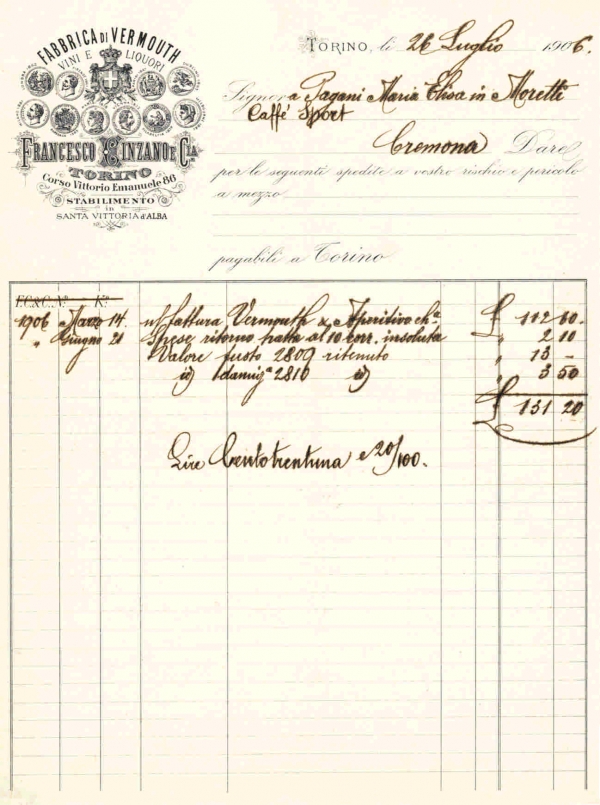 FABBRICA DI VERMOUTH
VINI E LIQUORI
FRANCESCO CINZANO E CIA
TORINO
Corso Vittorio Emanuele 86
STABILIMENTO
in
SANTA VITTORIA d'ALBA
TORINO, li 26 Luglio 1906.
Signora Pagani Maria Elisa in Moretti
Caffè Sport
Cremona Dare
per le seguenti spedite a vostro rischio e pericolo
a mezzo
pagabili a Torino
F.C.&C. N.° K.°
1906 Marzo 14. n/ fattura Vermouth & Aperitivo £ 112 60.
" Giugno 21 Spese ritorno tratta al 10 corr. insoluta " 2 10
Valore fusto 2809 ritenuto " 13 -
id 1 damig.a 2810 id " 3 50
£ 131 20
Lire Centotrentuna e 20/100.